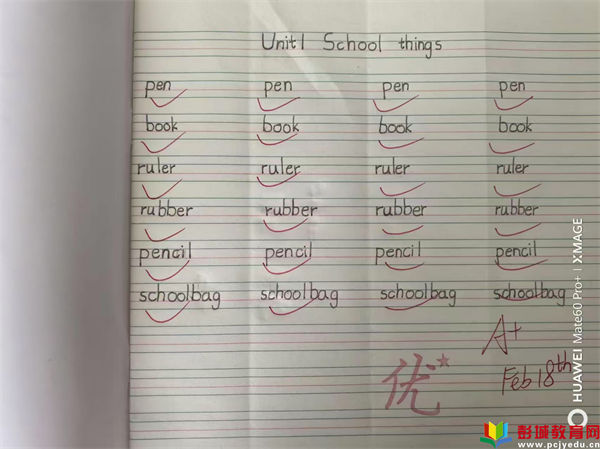 Unit1 School things
pen pen pen pen
book book book book
ruler ruler ruler ruler
rubber rubber rubber rubber
pencil pencil pencil pencil
schoolbag schoolbag schoolbag schoolbag
A+
优
Feb 18th
HUAWEI Mate60 Pro+ | XMAGE
彭城教育网
www.pcjyedu.cn